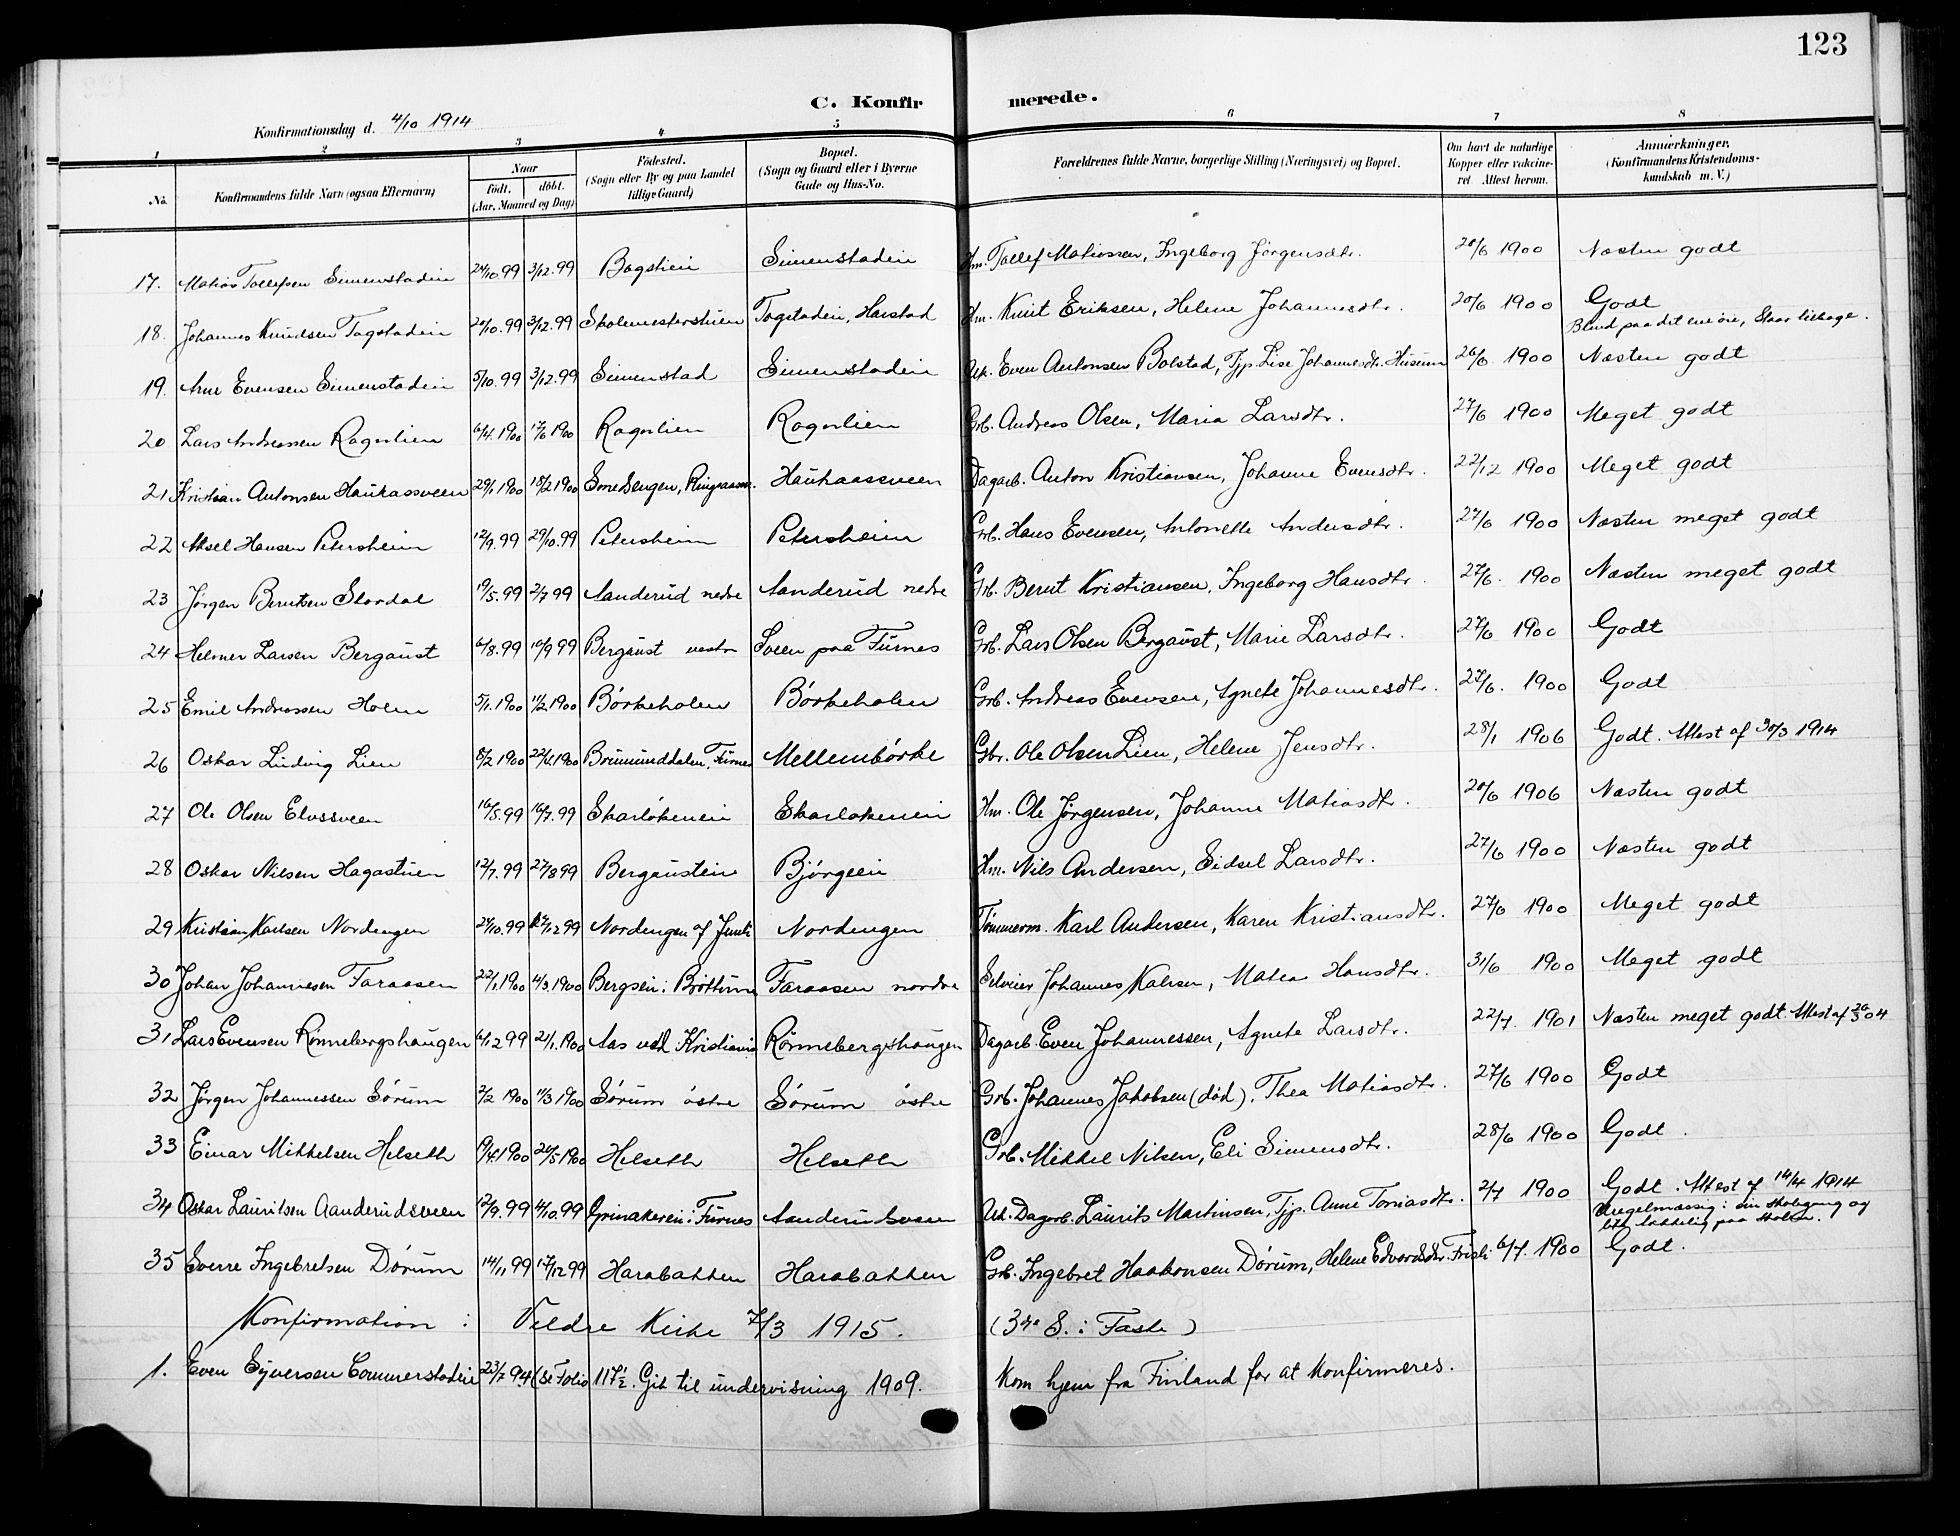 123
C. Konfirmerede.
Konfirmationsdag d. 4/10 1914
1 2 3 4 5 6 7 8
No. Konfirmandens fulde Navn (ogsaa Efternavn) Naar født. døbt. (Aar, Maaned og Dag) Fødested. (Sogn eller By og paa Landet tillige Gaard) Bopæl. (Sogn og Gaard eller i Byerne Gade og Hus-No. Forældrenes fulde Navne, borgerlige Stilling (Næringsvei) og Bopæl. Om havt de naturlige Kopper eller vakcineret. Attest herom. Anmærkninger. (Konfirmandens Kristendomskundskab m. V.)
17. Matias Tollefsen Simenstadeie 24/10.99 3/12.99 Bagstien Simenstadeie Hm. Tollef Matiassen, Ingeborg Jørgensdtr. 28/6 1900 Næsten godt
18. Johannes Knudsen Tagstadeie 20/10.99 3/12.99 Skolemesterstuen Tagstadeie, Harstad Hm. Knut Eriksen, Helene Johannesdtr. 20/6 1900 Godt
Blind paa det ene øie, Staar tilbage.
19. Arne Evensen Simenstadeie 5/10.99 3/12.99 Simenstad Simenstadeie Uk. Even Antonsen Bolstad, Tjp. Lise Johannesdtr. Husum 26/6 1900 Næsten godt
20 Lars Andreassen Ragnlien 6/4.1900 17/6 1900 Ragnlien Ragnlien Grb. Andreas Olsen, Maria Larsdtr. 27/6 1900 Meget godt
21 Kristian Antonsen Haukaasveen 29/1.1900 18/2 1900 Smedengen, Ringsaker. Haukaasveen Dagarb. Anton Kristiansen, Johanne Evensdtr. 22/12 1900 Meget godt
22 Aksel Hansen Petersheim 12/9.99 29/10.99 Petersheim Petersheim Grb. Hans Evensen, Antonette Andersdtr. 27/6 1900 Næsten meget godt
23 Jørgen Berntsen Stordal 19/5.99 2/7 99 Aanderud nedre Aanderud nedre Grb. Bernt Kristiansen, Ingeborg Hansdtr. 27/6. 1900 Næsten meget godt
24 Helmer Larsen Bergaust 6/8.99 10/9 99 Bergaust vestre Sveen paa Furnes Grb. Lars Olsen Bergaust, Marie Larsdtr. 27/6 1900 Godt
25 Emil Andreassen Holen 5/1.1900 11/2 1900 Børkeholen Børkeholen Grb. Andreas Evensen, Agnete Johannesdtr. 27/6. 1900 Godt
26 Oskar Ludvig Lien 8/2 1900 22/4.1900 Brumunddalen, Furnes Mellembørke Gbr. Ole Olsen Lien, Helene Jensdtr. 28/1 1906 Godt. Attest af 30/3 1914
27 Ole Olsen Elvssveen 16/5.99 16/7.99 Skarløkeneie Skarløkeneie Hm. Ole Jørgensen, Johanne Matiasdtr. 20/6 1906 Næsten godt
28 Oskar Nilsen Hagastuen 12/7.99 27/8 99 Bergausteie Bjørgeeie Hm. Nils Andersen, Sidsel Larsdtr. 27/6 1900 Næsten godt
29 Kristian Karlsen Nordengen 24/10.99 27/12 99 Nordengen af Nordengen Tømmerm. Karl Andersen, Karen Kristiansdtr. 27/6 1900 Meget godt
30 Johan Johannessen Faraasen 22/1.1900 4/3.1900 Bergseie i Brøttum Faraasen nordre Selveier Johannes Karlsen, Matea Hansdtr. 31/6 1900 Meget godt
31 Lars Evensen Rønnebergshaugen 6/12 99 21/1.1900 Aas ved Kristiania Rønnebergshaugen Dagarb. Even Johannessen, Agnete Larsdtr. 22/7. 1901 Næsten meget godt. Attest af 20/5 04
32 Jørgen Johannessen Sørum 2/2 1900 11/3 1900 Sørum østre Sørum østre Grb. Johannes Jakobsen (død), Thea Matiasdtr. 27/6 1900 Godt
33 Einar Mikkelsen Helseth 9/4.1900 20/5 1900 Helseth Helseth Grb. Mikkel Nilsen, Eli Simensdtr. 28/6 1900 Godt.
34 Oskar Lauritsen Aanderudsveen 12/9.99 14/10.99 Grinakereie i Furnes Aanderudsveen Uk. Dagarb. Laurits Martinsen, Tjp. Anne Toniasdtr. 2/7 1900 Godt. Attest af 14/4 1914
Uregelmæssig i sin skolegang og
lidt paa Skolen.
35 Sverre Ingebretsen Dørum 14/11 99 17/12 99 Harabakken Harabakken Grb. Ingebret Haakonsen Dørum, Helene Edvardsdtr. Frisli 6/7. 1900 Godt.
Konfirmation i Veldre Kirke 7/3 1915. (3de S. i Faste)
1. Even Syversen Commerstadeie 23/7 94 (se Folio 117½. Gik til undervisning 1909. Kom hjem fra Finland for at Konfirmeres.